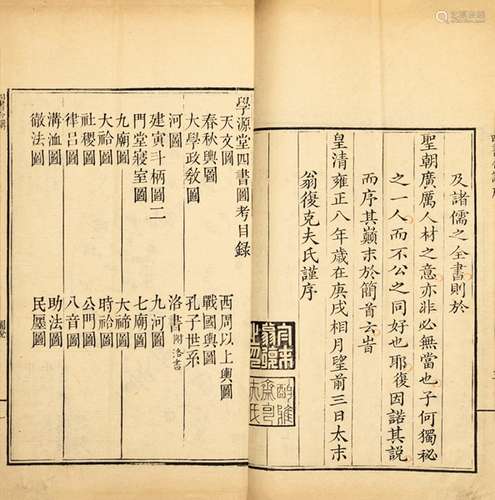 及諸儒之全書則於
聖朝廣厲人材之意亦非必無當也子何獨秘
之一人而不公之同好也耶復因諾其說
而序其巔末於簡首云旹
皇清雍正八年歲在庚戌相月望前三日太末
翁復克夫氏謹序
學源堂四書圖考目錄
天文圖 西周以上輿圖
春秋輿圖 戰國輿圖
大學政敎圖 孔子世系
河圖 洛書 附洛書
建寅斗柄圖二 九河圖
門堂寢室圖 七廟圖
九廟圖 大禘圖
大祫圖 時祫圖
社稷圖 公門圖
律呂圖 八音圖
溝洫圖 助法圖
徹法圖 民廛圖